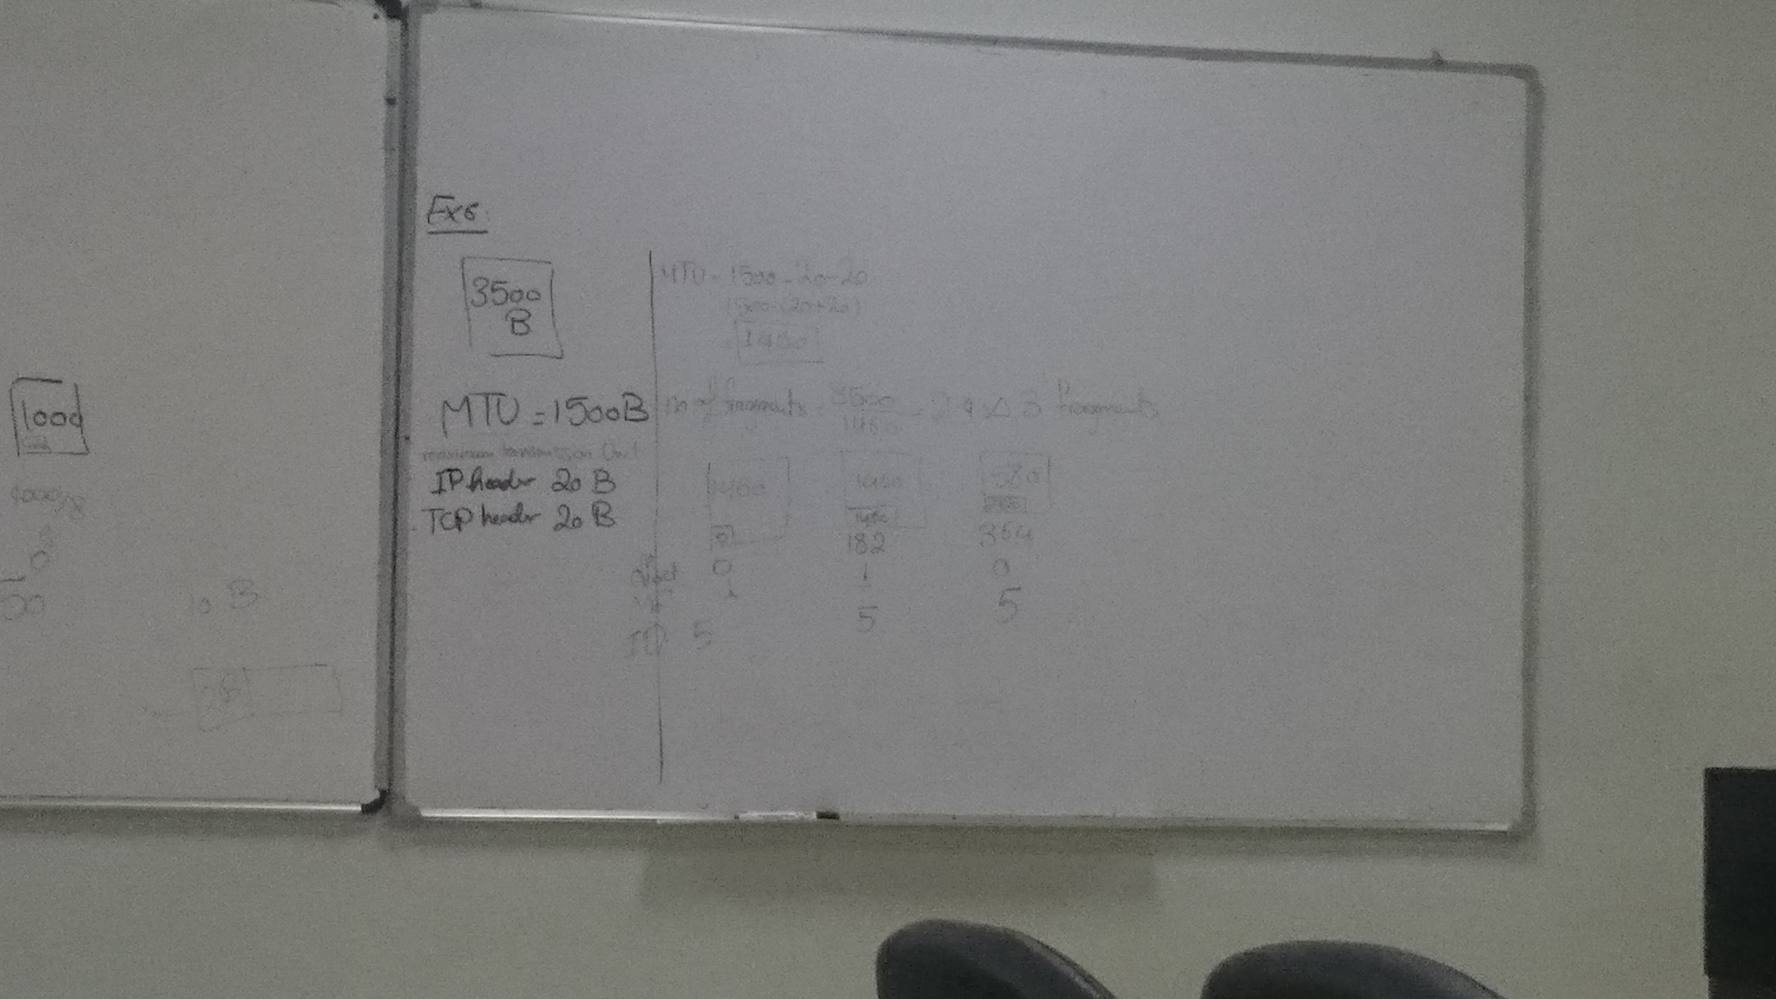 1000
1000/8
0
50
10 B
Ex6:
3500
B
MTU = 1500B
maximum transmission Unit
IP header 20 B
TCP header 20 B
MTU = 1500 - 20 - 20
1500 - (20+20)
= 1460
no of fragments = 3500 / 1460 = 2.4 ≈ 3 fragments
1460 1460 580
0 182 364
offset 0 1 0
1
ID 5 5 5